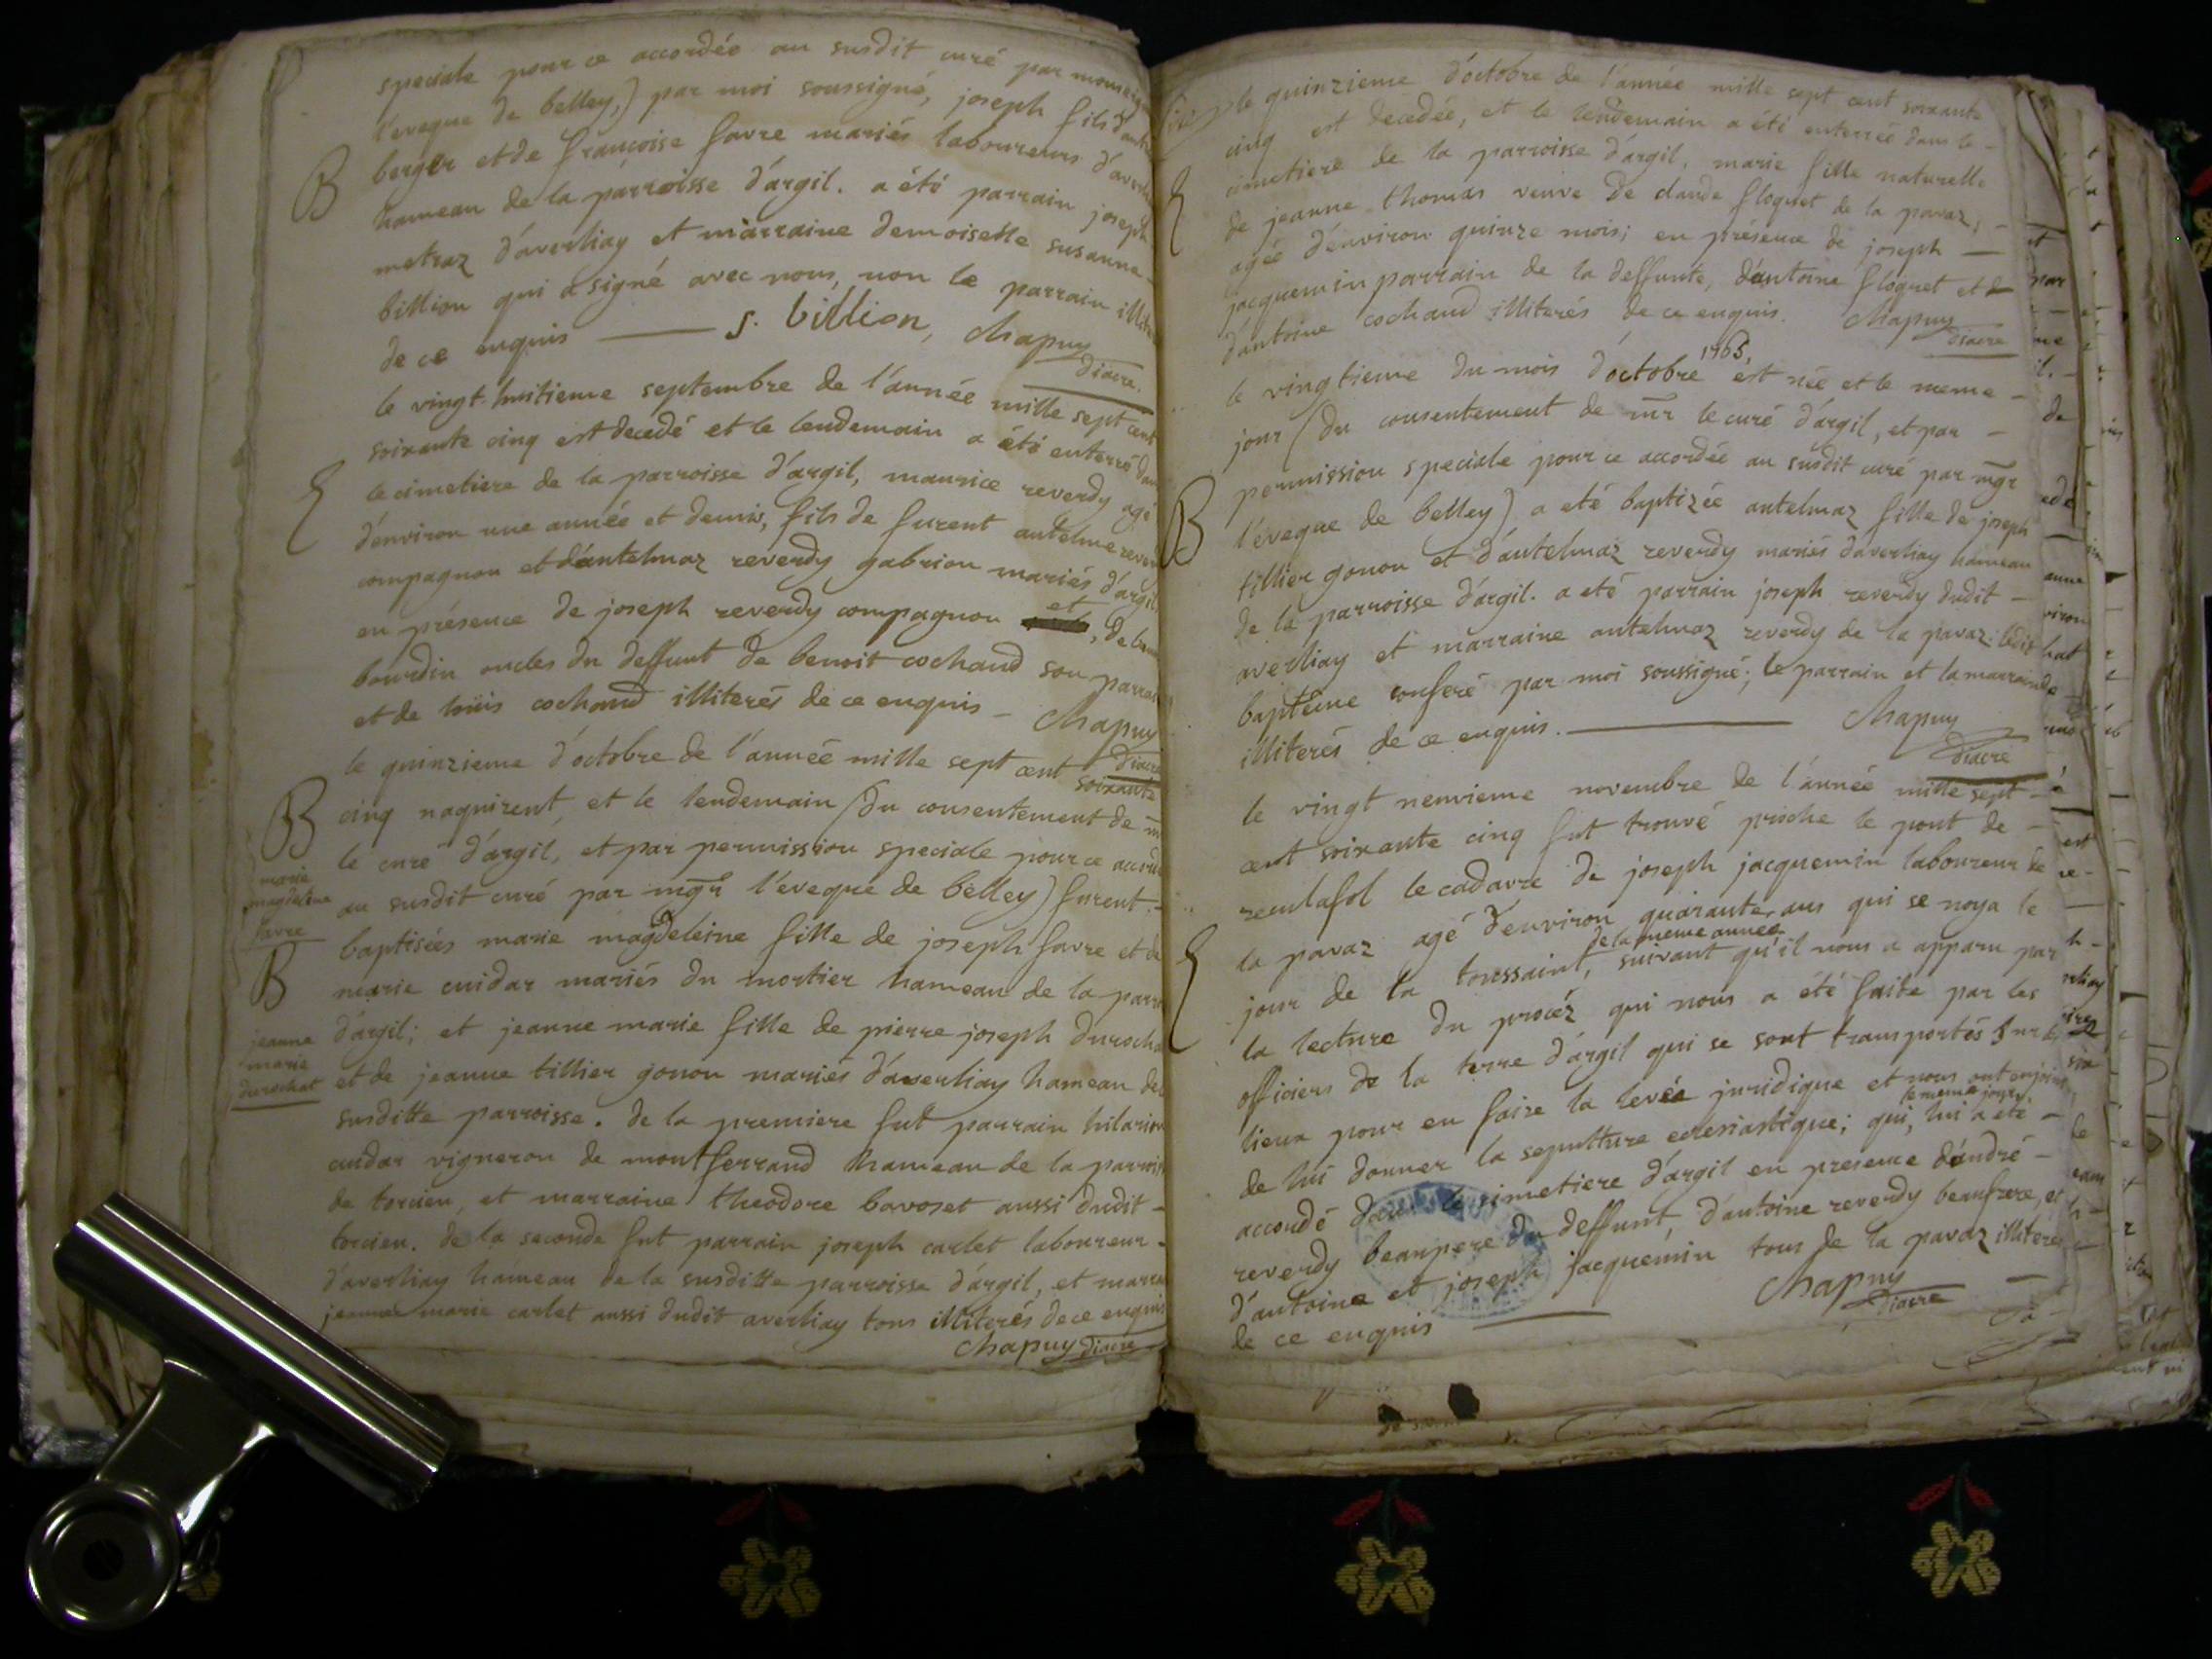 speciale pour ce accordée au susdit curé par
l'eveque de belley,) par moi soussigné, joseph fils
B berger et de françoise favre mariés laboureurs
hameau de la parroisse d'argil. a été parrain joseph
metraz d'averliay et marraine demoiselle susanne
billion qui a signé avec nous, non le parrain
de ce enquis s. billion, Chapuy
diacre.
le vingt-huitieme septembre de l'année mille sept cent
soixante cinq est decedé et le lendemain a été enterré
le cimetiere de la parroisse d'argil, maurice reverdy agé
d'environ une année et demis, fils de furent antelme
compagnon et d'antelmaz reverdy gabrion mariés d'argil
en présence de joseph reverdy compagnon et,
bourdin oncles du deffunt de benoit cochand son
et de loüis cochand illiterés de ce enquis - Chapuy
diacre
le quinzieme d'octobre de l'année mille sept cent soixante
B cinq naquirent, et le lendemain (du consentement de
le curé d'argil, et par permission speciale pour ce
marie magdeleine favre
au susdit curé par mgr l'eveque de belley) furent
baptisées marie magdeleine fille de joseph favre et de
B marie cuidar mariés du mortier hameau de la
jeanne marie durochat
d'argil; et jeanne marie fille de pierre joseph
et de jeanne tillier gonon mariés d'averliay hameau
susditte parroisse. de la premiere fut parrain hilarion
cudar vigneron de montferrand hameau de la
de torcieu, et marraine theodore bavoset aussi dudit
torcieu. de la seconde fut parrain joseph carlet laboureur
d'averliay hameau de la susditte parroisse d'argil, et
jeanne marie carlet aussi dudit averliay tous illiterés de ce enquis
Chapuy diacre
le quinzieme d'octobre de l'année mille sept cent soixante
cinq est decedée, et le lendemain a été enterrée dans le
cimetiere de la parroisse d'argil, marie fille naturelle
de jeanne thomas veuve de claude floquet de la pavaz,
agée d'environ quinze mois; en présence de joseph
jacquemin parrain de la deffunte, d'antoine floquet et
d'antoine cochand illiterés de ce enquis. Chapuy
diacre
le vingtieme du mois d'octobre 1765, est née et le meme
jour (du consentement de mr le curé d'argil, et par
permission speciale pour ce accordée au susdit curé par mgr
B l'éveque de belley) a eté baptizée antelmaz fille de joseph
tillier gonon et d'antelmaz reverdy mariés d'averliay hameau
de la parroisse d'argil. a eté parrain joseph reverdy dudit
averliay et marraine antelmaz reverdy de la pavaz. ledit
bapteme conferé par moi soussigné; le parrain et la marraine
illiterés de ce enquis. Chapuy
diacre
le vingt neuvieme novembre de l'année mille sept
cent soixante cinq fut trouvé proche le pont de
reculafol le cadavre de joseph jacquemin laboureur de
la pavaz agé d'environ quarante ans qui se noya le
jour de la toussaint, de la meme année suivant qu'il nous a apparu par
la lecture du procéz qui nous a été faite par les
officiers de la terre d'argil qui se sont transportés sur les
lieux pour en faire la levée juridique et nous ont enjoint
de lui donner la sepulture eclesiastique; qui, le meme jour, lui a eté
accordé dans le cimetiere d'argil en presence d'andré
reverdy beaupere du deffunt, d'antoine reverdy beaufrere, et
d'antoine et joseph jacquemin tous de la pavaz illiterés
de ce enquis Chapuy
diacre